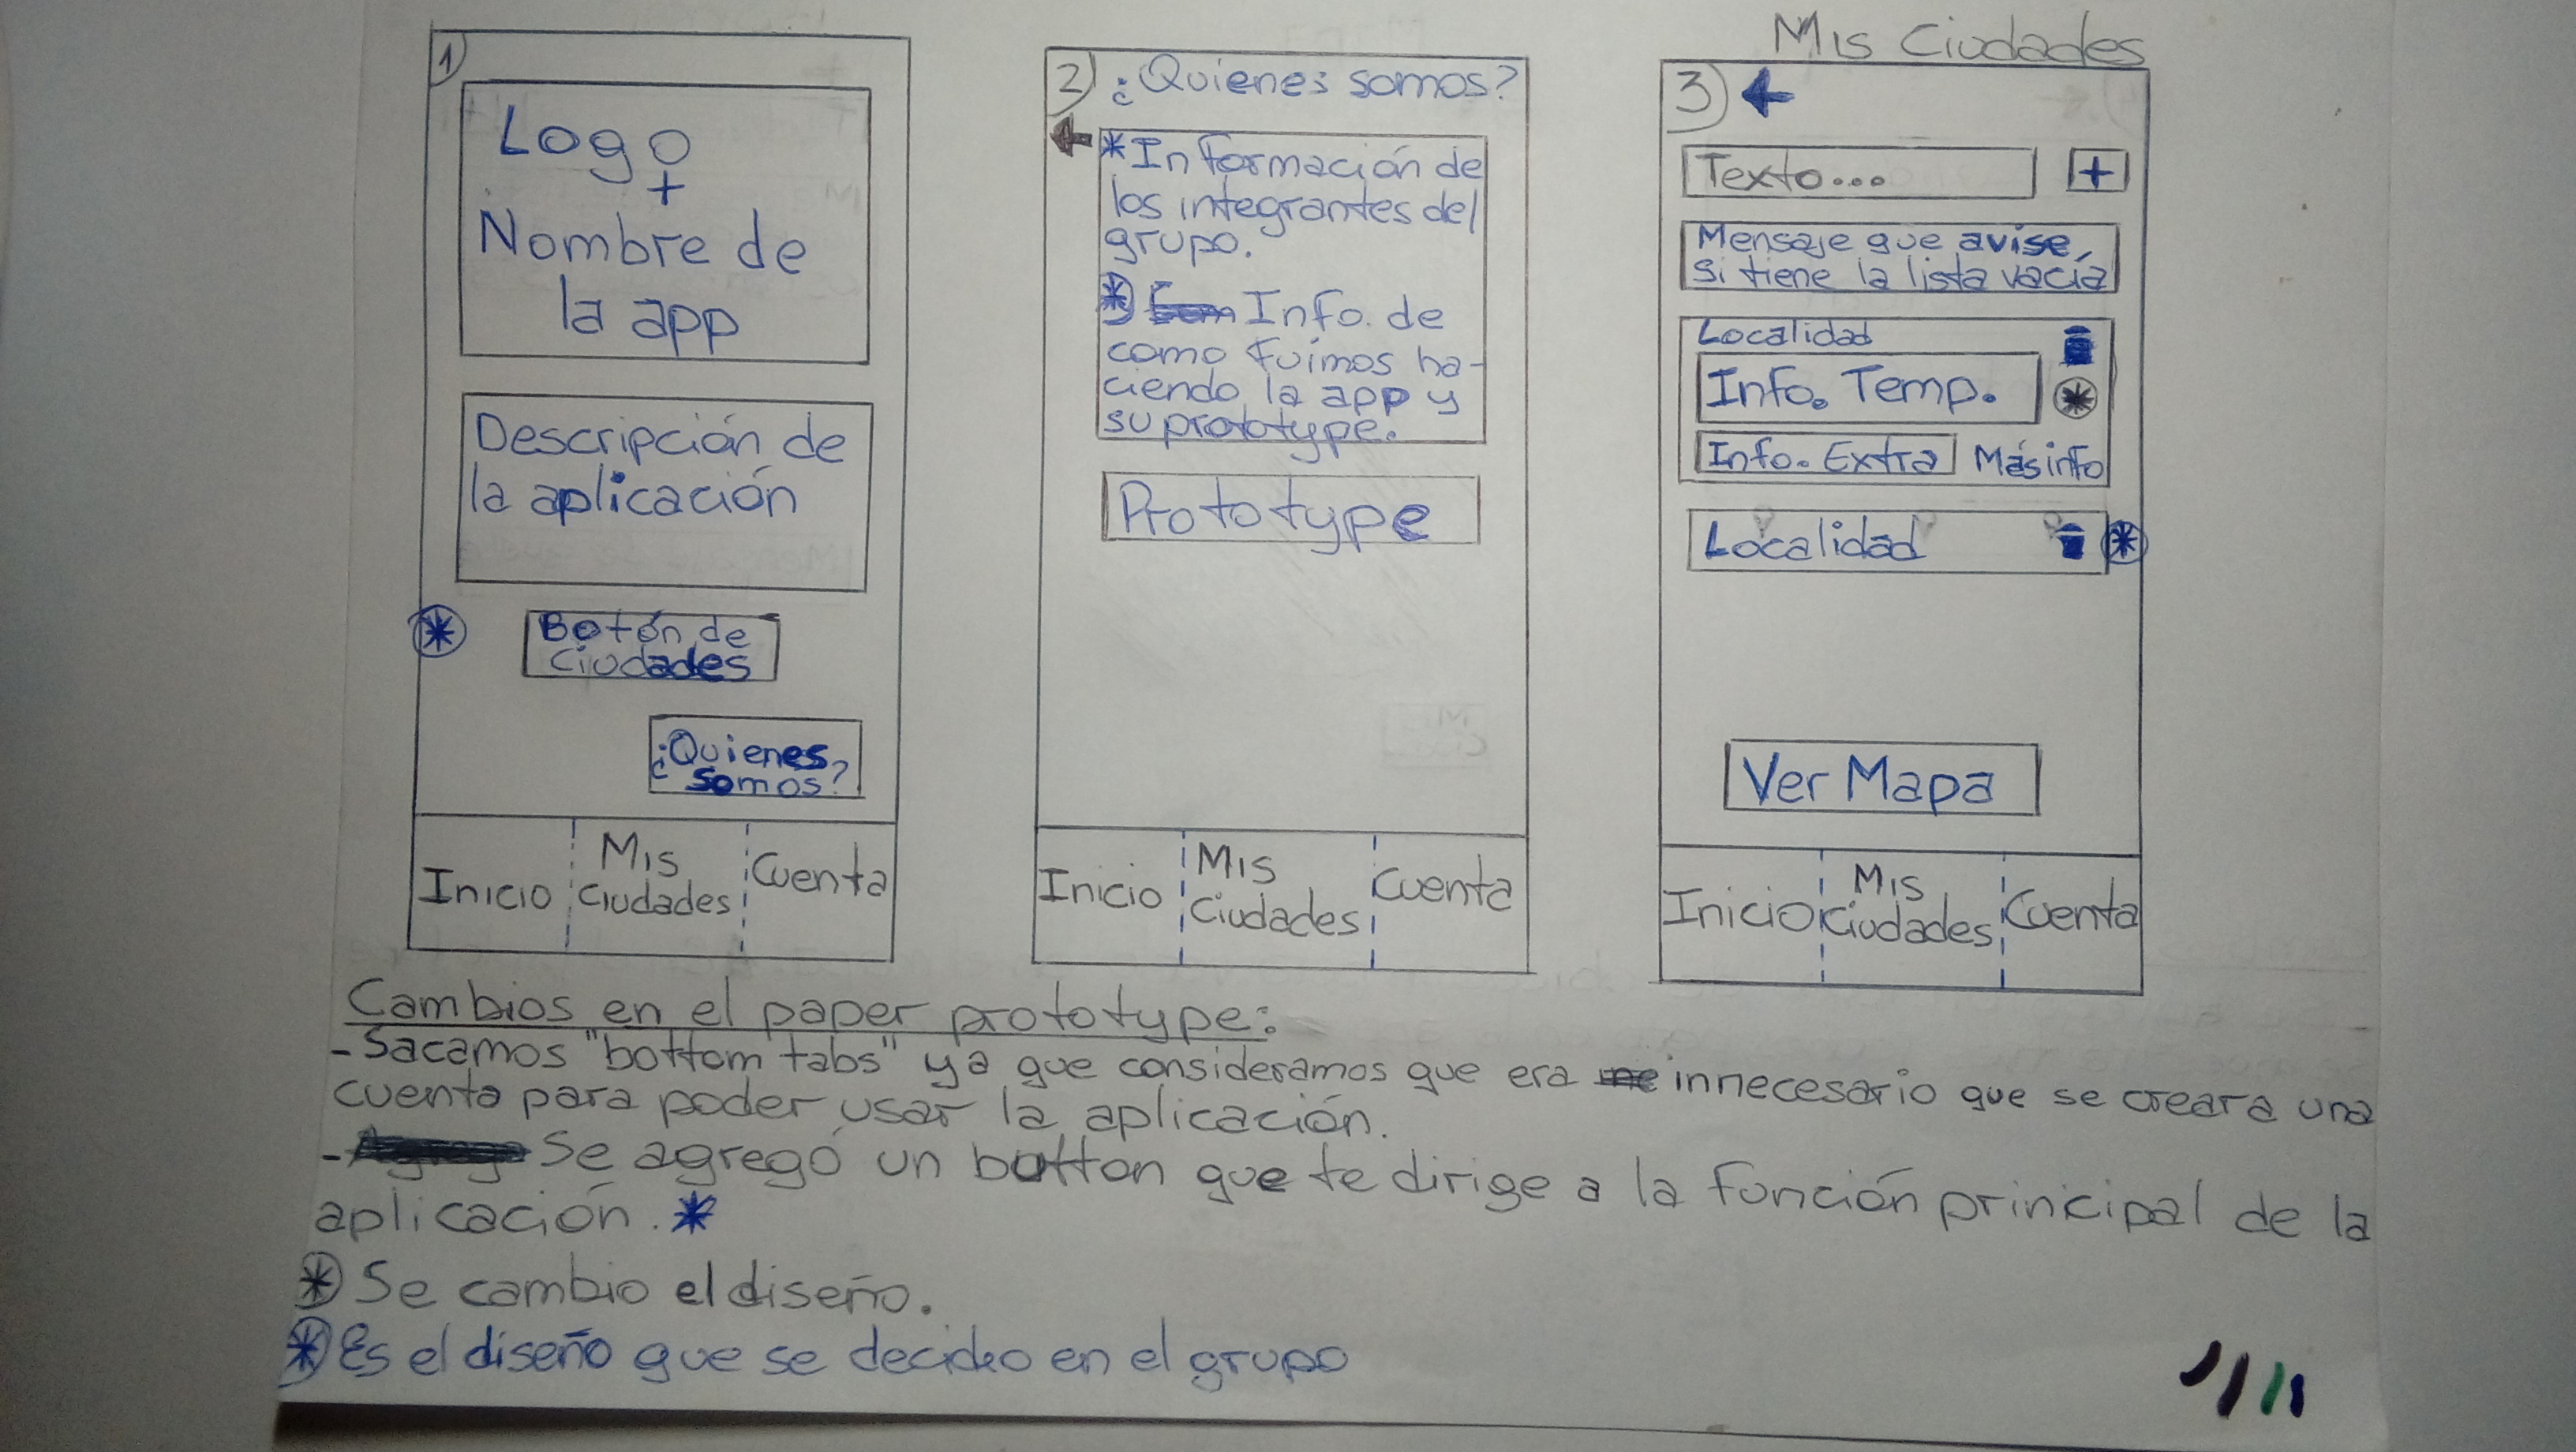 1)
Logo
+
Nombre de
la app
Descripción de
la aplicación
Botón de
Ciudades
¿Quienes
somos?
Inicio
Mis
Ciudades
Cuenta
2) ¿Quienes somos?
* Información de
los integrantes del
grupo.
* Info. de
como fuímos ha-
ciendo la app y
su prototype.
Prototype
Inicio
Mis
Ciudades
Cuenta
Mis Ciudades
3) ←
Texto...
+
Mensaje que avise,
si tiene la lista vacía
Localidad
Info. Temp.
*
Info. Extra
Más info
Localidad
*
Ver Mapa
Inicio
Mis
Ciudades
Cuenta
Cambios en el paper prototype:
- Sacamos "bottom tabs" ya que consideramos que era innecesario que se creara una
cuenta para poder usar la aplicación.
- Se agregó un button que te dirige a la función prinicipal de la
aplicación. *
* Se cambio el diseño.
* Es el diseño que se decidio en el grupo